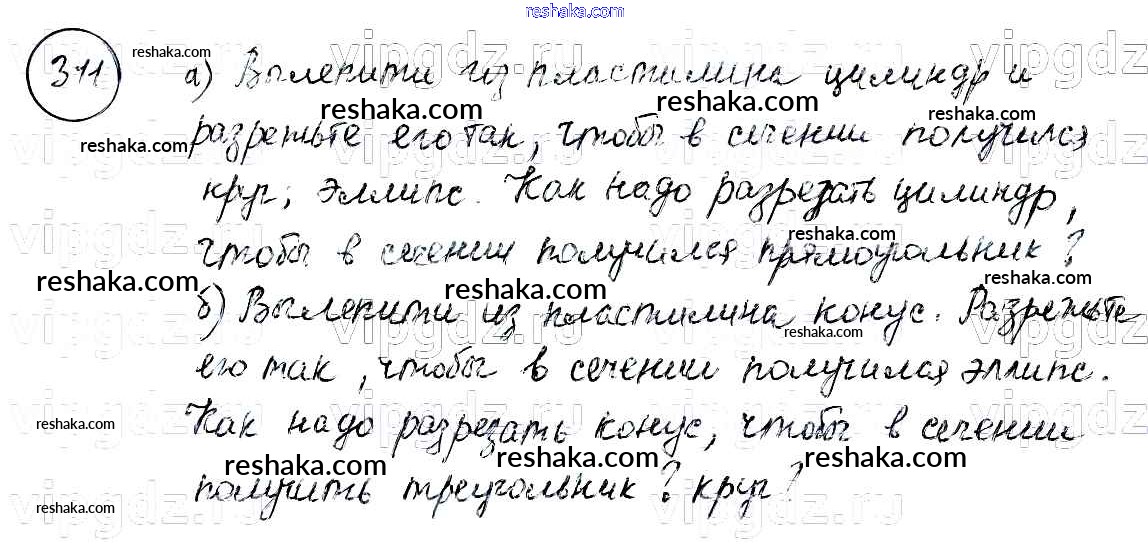 reshaka.com
reshaka.com
311 а) Вылепити из пластилина цилиндр и
reshaka.com reshaka.com reshaka.com
разрежьте его так, чтобы в сечении получился
reshaka.com reshaka.com
круг; эллипс. Как надо разрезать цилиндр,
чтобы в сечении получился прямоугольник?
reshaka.com
reshaka.com reshaka.com reshaka.com
б) Вылепити из пластилина конус. Разрежьте
reshaka.com
его так, чтобы в сечении получился эллипс.
Как надо разрезать конус, чтобы в сечении
reshaka.com reshaka.com
reshaka.com reshaka.com reshaka.com
получить треугольник? круг?